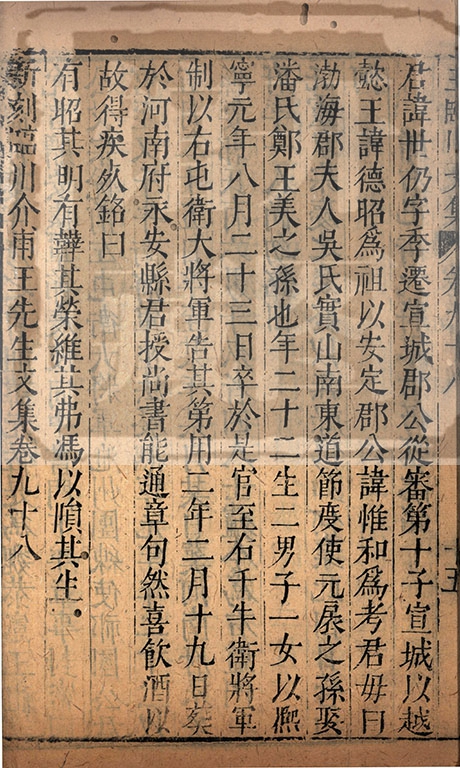 君諱世仍字季遷宣城郡公從審第十子宣城以越
懿王諱德昭爲祖以安定郡公諱惟和爲考君毋曰
渤海郡夫人吳氏實山南東道節度使元扆之孫娶
潘氏鄭王美之孫也年二十二生二男子一女以熈
寧元年八月二十三日卒於是官至右千牛衛將軍
制以右屯衛大將軍告其第用二年二月十九日葬
於河南府永安縣君授尚書能通章句然喜飲酒以
故得疾以死銘曰
有昭其明有韡其榮維其弗馮以隕其生。
新刻臨川介甫王先生文集卷九十八